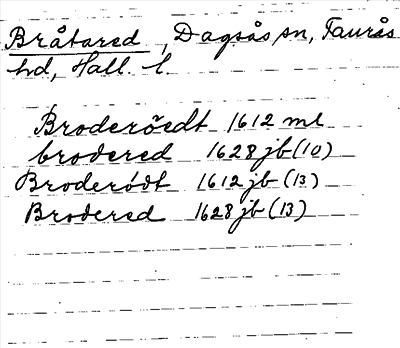 Bråtared, Dagsås sn, Faurås
hd, Hall. l.
Broderöedt 1612 ml
brodered 1628 jb (10)
Broderódt 1612 jb (13)
Brodered 1628 jb (13)